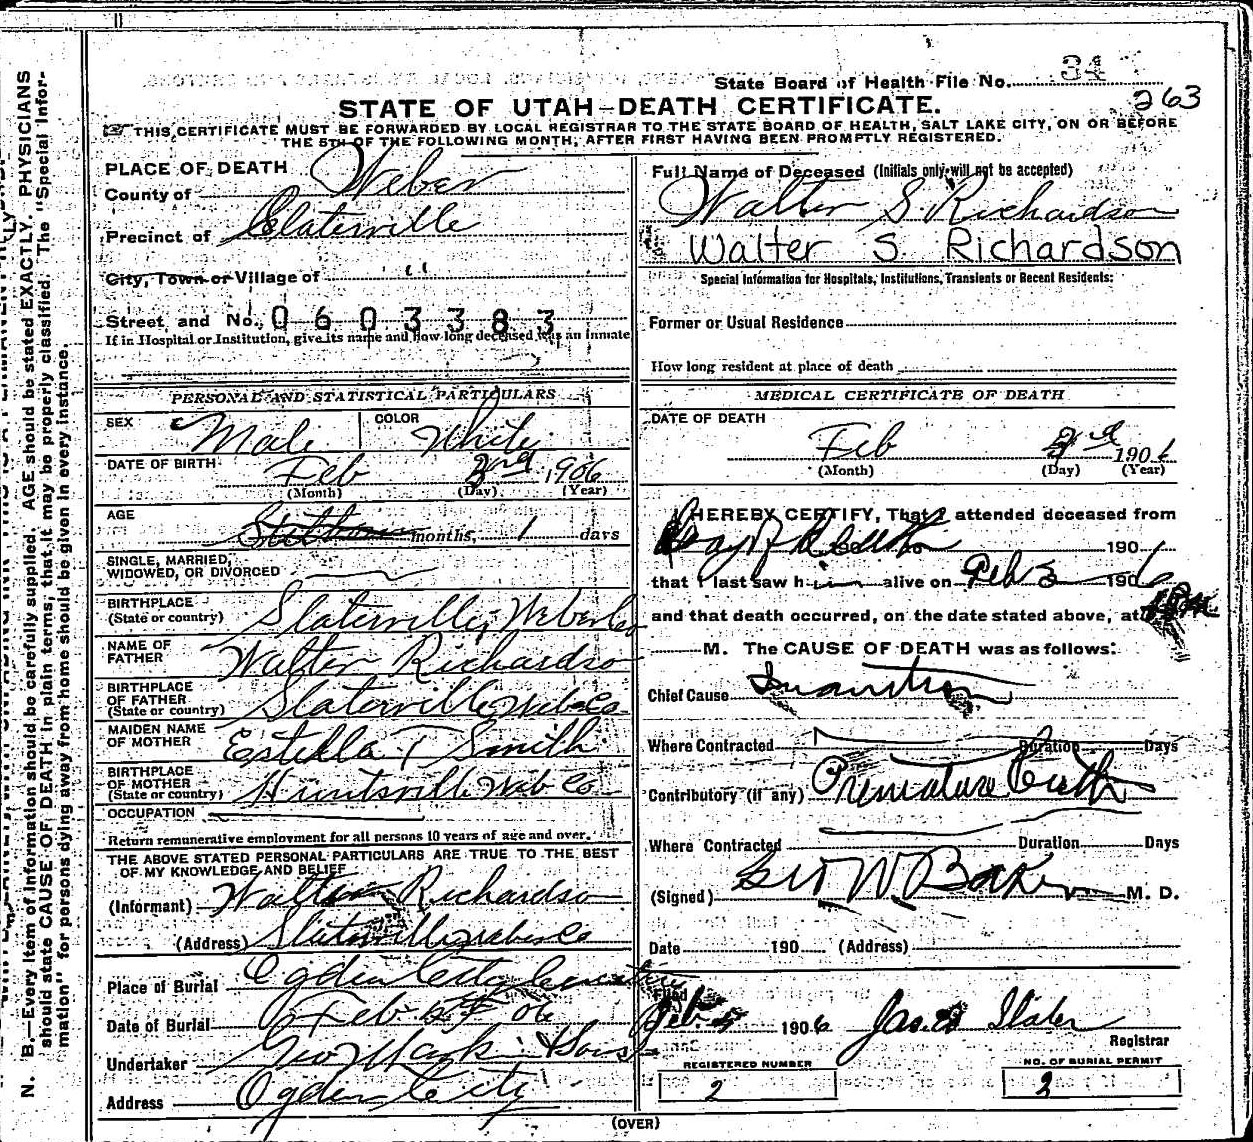 State Board of Health File No. 34
263
STATE OF UTAH—DEATH CERTIFICATE.
THIS CERTIFICATE MUST BE FORWARDED BY LOCAL REGISTRAR TO THE STATE BOARD OF HEALTH, SALT LAKE CITY, ON OR BEFORE
THE 5TH OF THE FOLLOWING MONTH, AFTER FIRST HAVING BEEN PROMPTLY REGISTERED.
PLACE OF DEATH
County of Weber
Precinct of Slaterville
City, Town or Village of "
Street and No. 0603383
If in Hospital or Institution, give its name and how long deceased was an inmate
PERSONAL AND STATISTICAL PARTICULARS
SEX Male COLOR White
DATE OF BIRTH Feb 1906
(Month) (Day) (Year)
AGE months, 1 days
SINGLE, MARRIED,
WIDOWED, OR DIVORCED
BIRTHPLACE Slaterville, Weber Co
(State or country)
NAME OF
FATHER Walter Richardson
BIRTHPLACE
OF FATHER Slaterville Web Co
(State or country)
MAIDEN NAME
OF MOTHER Estella T Smith
BIRTHPLACE
OF MOTHER Huntsville Web Co
(State or country)
OCCUPATION
Return remunerative employment for all persons 10 years of age and over.
THE ABOVE STATED PERSONAL PARTICULARS ARE TRUE TO THE BEST
OF MY KNOWLEDGE AND BELIEF
(Informant) Walter Richardson
(Address) Slaterville Weber Co
Place of Burial Ogden City Cemetery
Date of Burial Feb 06
Undertaker & Sons
Address Ogden City
Full Name of Deceased (Initials only will not be accepted)
Walter S. Richardson
Walter S. Richardson
Special Information for Hospitals, Institutions, Transients or Recent Residents:
Former or Usual Residence
How long resident at place of death
MEDICAL CERTIFICATE OF DEATH
DATE OF DEATH
Feb 1906
(Month) (Day) (Year)
I HEREBY CERTIFY, That I attended deceased from
190
that I last saw him alive on Feb 1906
and that death occurred, on the date stated above, at
M. The CAUSE OF DEATH was as follows:
Chief Cause Inanition
Where Contracted Duration Days
Contributory (if any) Premature Birth
Where Contracted Duration Days
(Signed) Geo W Baker M. D.
Date 190 (Address)
Filed
Feb 1906 Jas. Slater
Registrar
REGISTERED NUMBER
2
NO. OF BURIAL PERMIT
2
(OVER)
N. B.—Every item of information should be carefully supplied. AGE should be stated EXACTLY. PHYSICIANS
should state CAUSE OF DEATH in plain terms, that it may be properly classified. The "Special Infor-
mation" for persons dying away from home should be given in every instance.